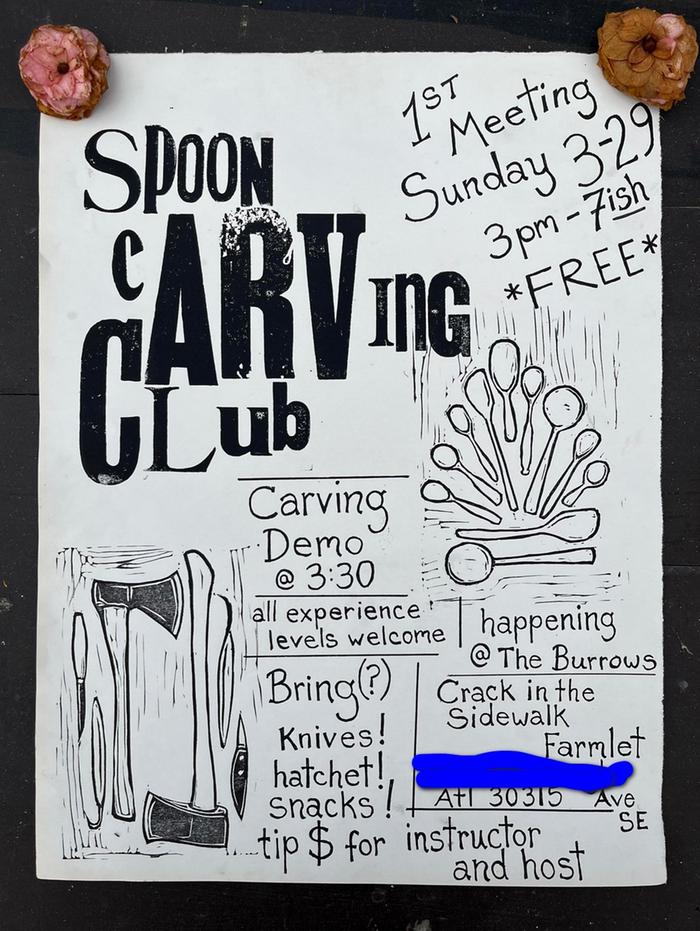 SPOON
CARVING
CLub
1ST
Meeting
Sunday 3-29
3pm-7ish
*FREE*
Carving
Demo
@ 3:30
all experience
levels welcome
happening
@ The Burrows
Bring(?)
Knives!
hatchet!
snacks!
tip $ for instructor
and host
Crack in the
Sidewalk
Farmlet
Atl 30315 Ave
SE